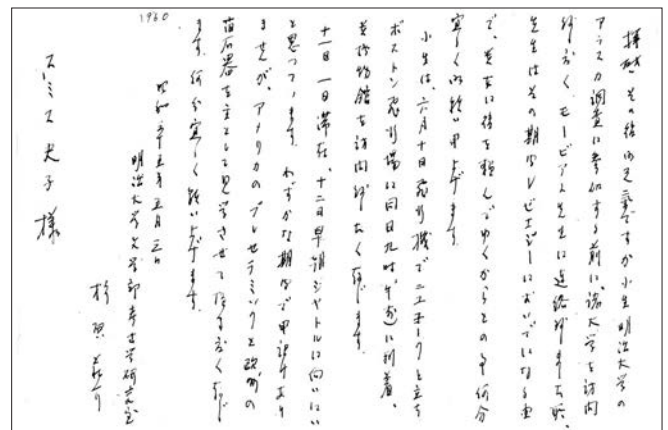 拝啓 その後御元気ですか 小生明治大学の
アラスカ調査に参加する前に、諸大学を訪問
致したく、モービアス先生に連絡致しました所、
先生はその期間レゼエジーにおいでになる由
で、貴女に後を頼んでゆくからとの事 何分
宜しく御願い申上げます
小生は、六月十日飛行機でニューヨークを立ち
ボストン飛行場に同日九時半(前)に到着、
貴博物館を訪問致したく存じます
十一日一日滞在、十二日早朝シャトルに向いたい
と思っています。わずかな期間で申訳あり
ませんが、アメリカのプレセラミックと欧州の
旧石器を主として見学させて頂きたく存じ
ます。何分宜しく願い上げます。
1960 昭和三十五年五月三日
明治大学文学部考古学研究室
杉原荘介
スミス光子様